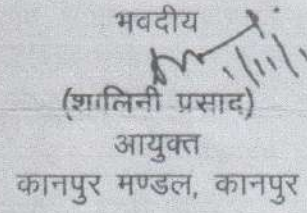 भवदीय
(शालिनी प्रसाद)
आयुक्त
कानपुर मण्डल, कानपुर